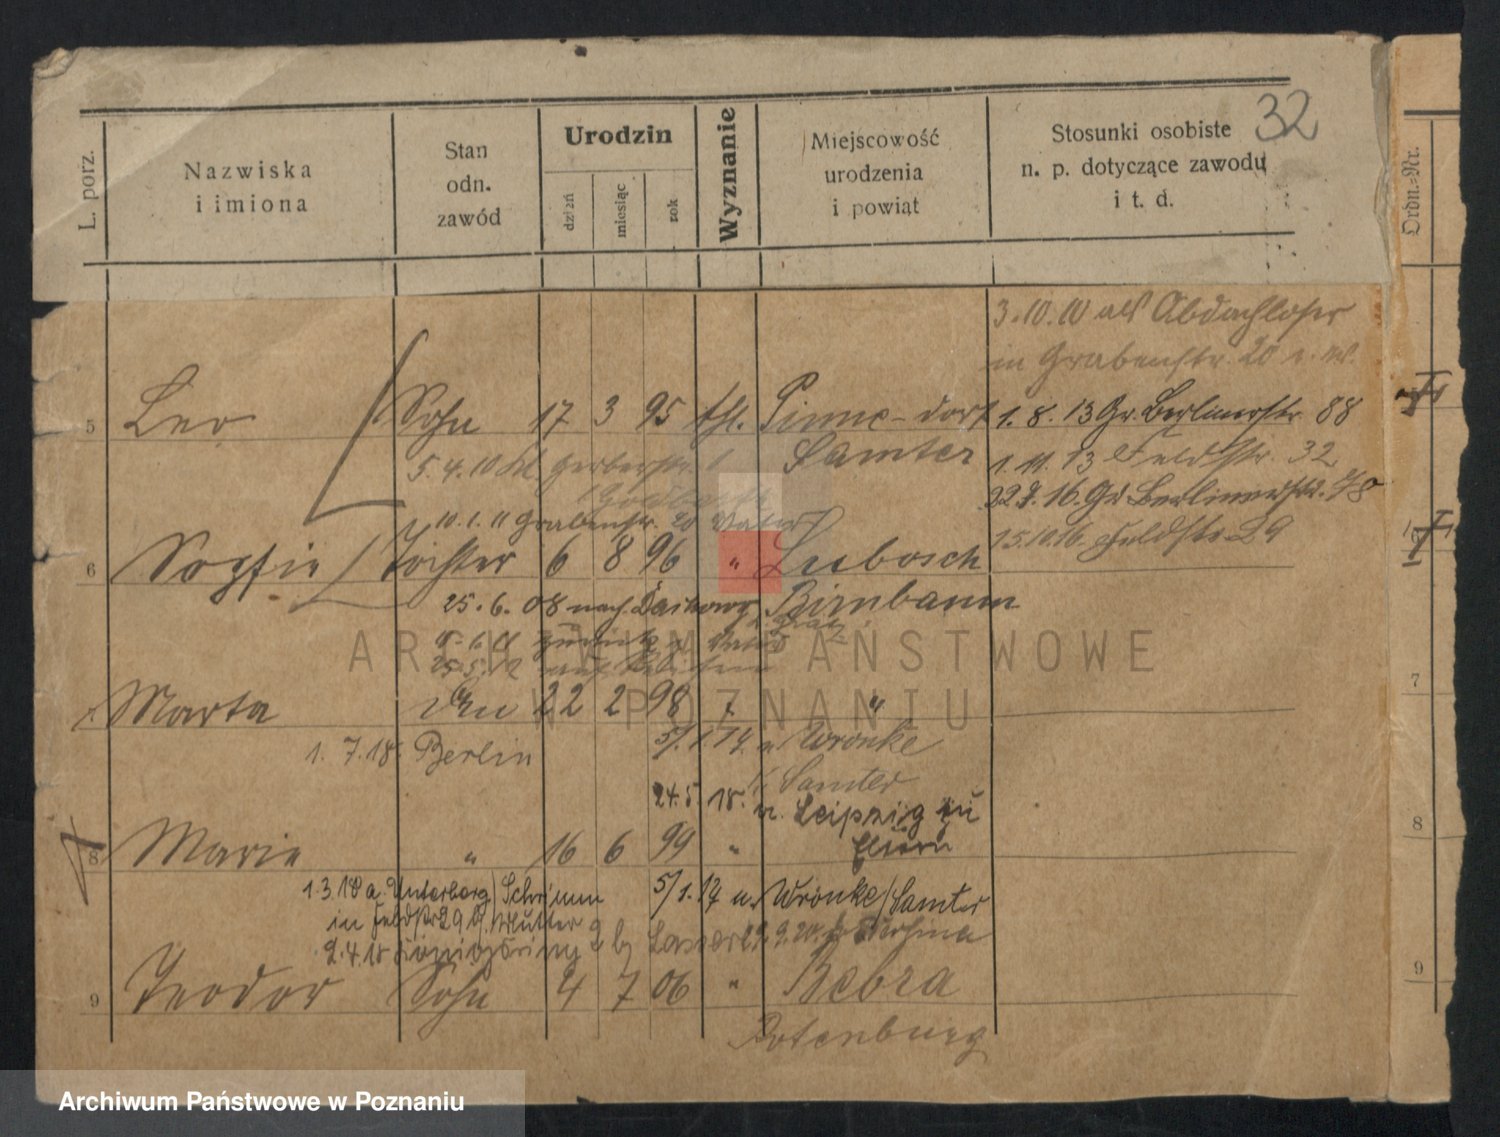 32
L. porz.
Nazwiska
i imiona
Stan
odn.
zawód
Urodzin
dzień
miesiąc
rok
Wyznanie
Miejscowość
urodzenia
i powiat
Stosunki osobiste
n. p. dotyczące zawodu
i t. d.
Ordn.-Nr.
3.10.10 als Abdachloser
in Grabenstr. 20
5 Leo Sohn 17 3 95 kth. Pinne - dorf 1.8.13 Gr. Berlinerstr. 88
Samter
5.4.10 Kl. Gerberstr.
1.11.13 Feldstr. 32
22.9.16. Gr. Berlinerstr. 78
10.1.11 Grabenstr. 20 Vater
15.10.16 Feldstr. 29
6 Sophie Tochter 6 8 96 " Lubosch
25.6.08 nach Birnbaum
zurück z. Vater
Marta 22 2 98 "
7
1.7.18. Berlin
5/1.17. n Wronke
Samter
24.5.18. n. Leipzig zu
Eltern
8 Marie " 16 6 99 "
8
1.3.18 a. Unterberg/Schrimm
5/1.17 n. Wronke/Samter
in Feldstr 29 b. Mutter
2.4.18 Königsring
9 Teodor Sohn 4 7 06 " Bebra
9
Rotenburg
ARCHIWUM PAŃSTWOWE
W POZNANIU
Archiwum Państwowe w Poznaniu